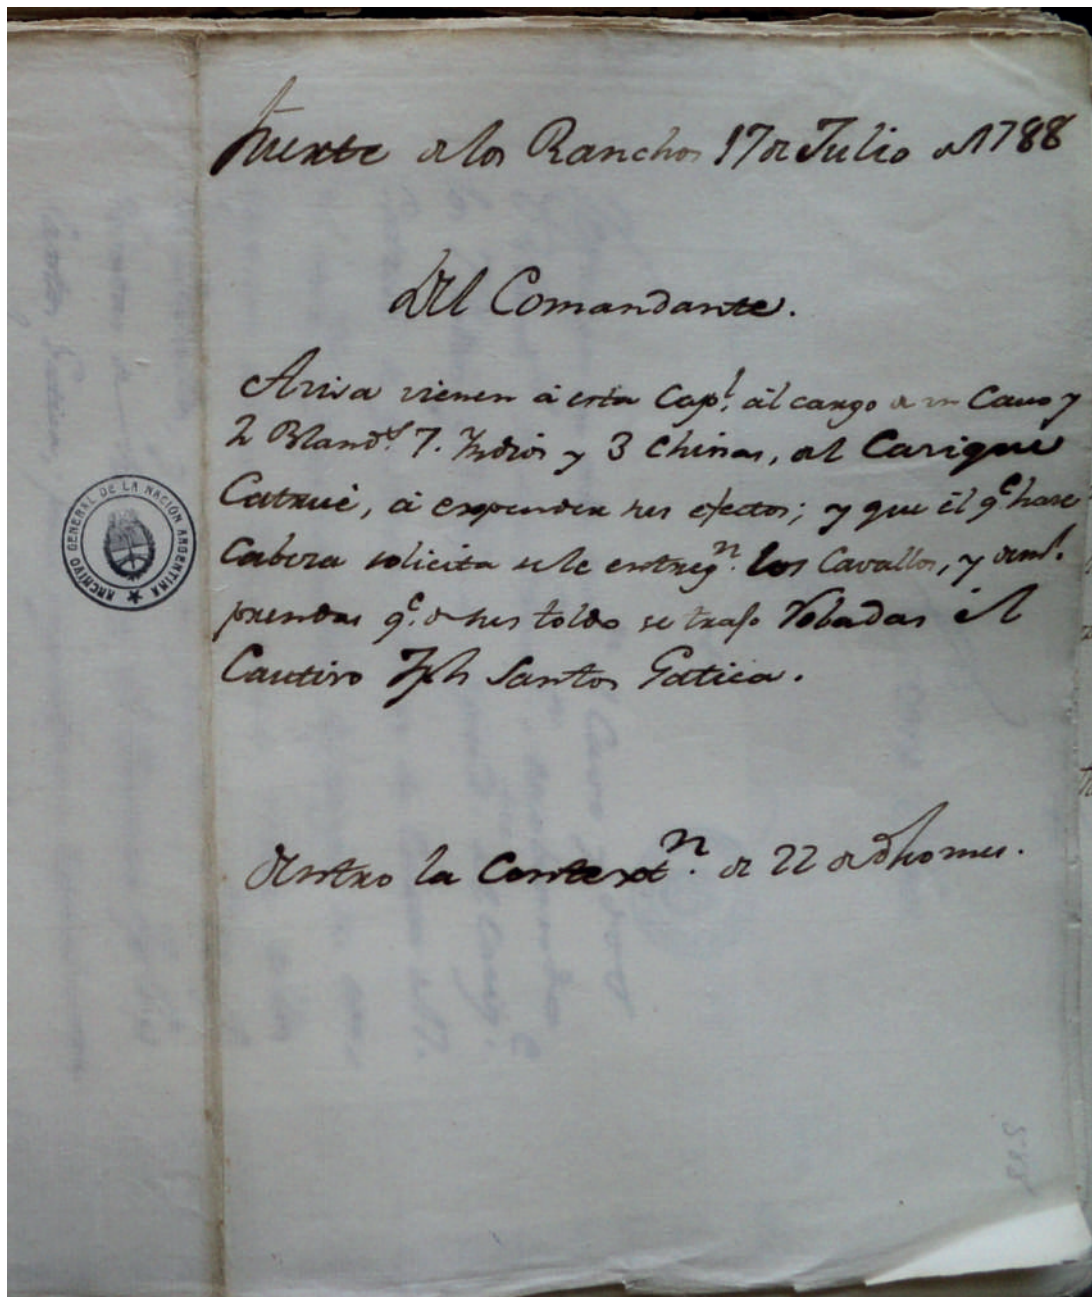 Fuerte de los Ranchos 17 de Julio de 1788
Del Comandante.
Avisa vienen á esta Capl. al cargo de un Cavo y
2 Blands. 7. Indios y 3 Chinas, del Cazique
Catrué, á expender sus efectos; y que él qe. hase
Cabeza solicita sele entregn. los Cavallos, y deml.
prendas qe. de sus toldo se trajo Robadas él
Cautivo Jph Santos Gatica.
dentro la Contextn. de 22 de dho mes.
ARCHIVO GENERAL DE LA NACIÓN ARGENTINA